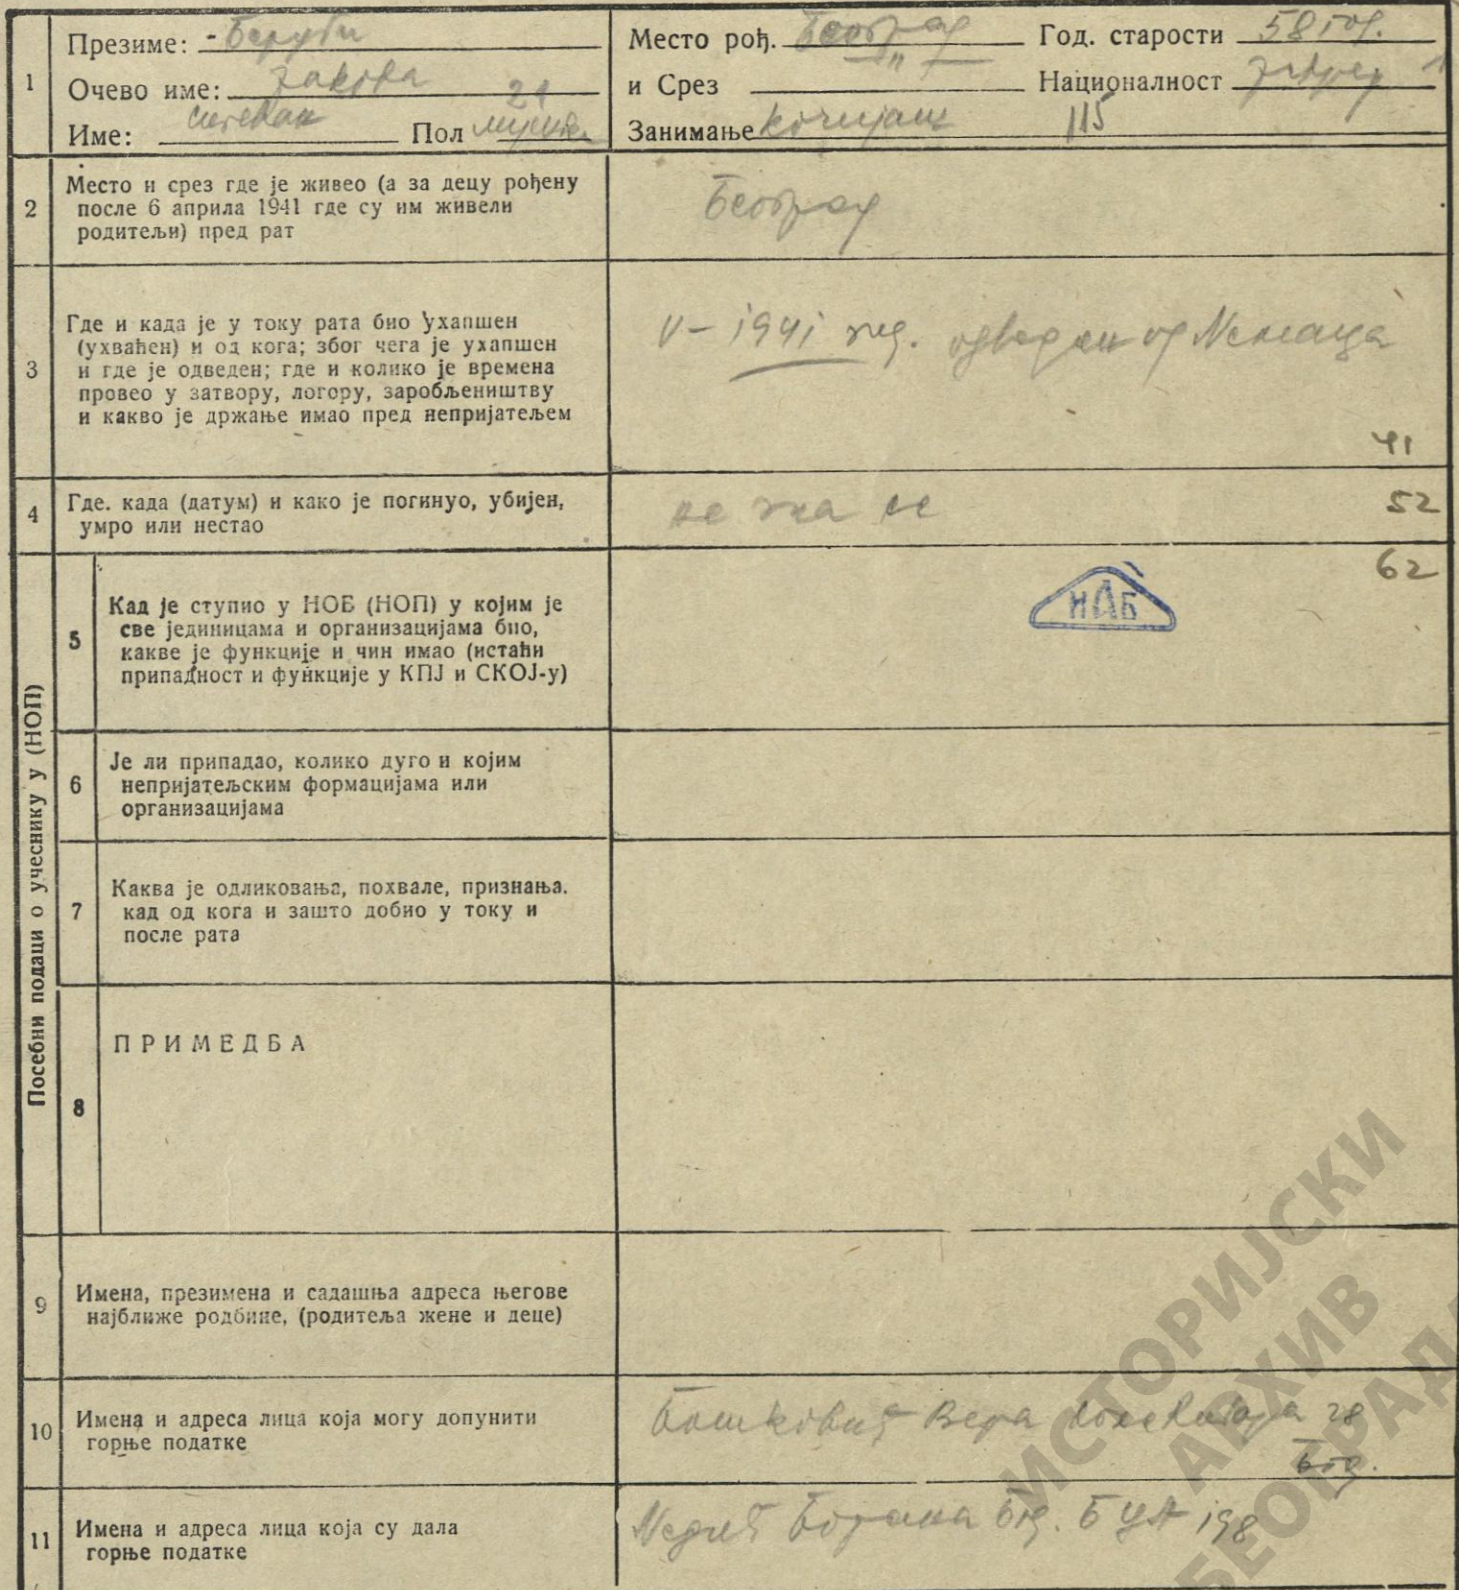 1
Презиме: - Беруби
Очево име: Јакова
Име: Стеван Пол мушки 21
Место рођ. Београд Год. старости 58 год.
и Срез " Националност Јевреј 1
Занимање кочијаш 115
2
Место и срез где је живео (а за децу рођену
после 6 априла 1941 где су им живели
родитељи) пред рат
Београд
3
Где и када је у току рата био ухапшен
(ухваћен) и од кога; због чега је ухапшен
и где је одведен; где и колико је времена
провео у затвору, логору, заробљеништву
и какво је држање имао пред непријатељем
V - 1941 год. одведен од Немаца
41
4
Где. када (датум) и како је погинуо, убијен,
умро или нестао
не зна се
52
62
Посебни подаци о учеснику у (НОП)
5
Кад је ступио у НОБ (НОП) у којим је
све јединицама и организацијама био,
какве је функције и чин имао (истаћи
припадност и функције у КПЈ и СКОЈ-у)
ИАБ
6
Је ли припадао, колико дуго и којим
непријатељским формацијама или
организацијама
7
Каква је одликовања, похвале, признања.
кад од кога и зашто добио у току и
после рата
8
ПРИМЕДБА
9
Имена, презимена и садашња адреса његове
најближе родбине, (родитеља жене и деце)
10
Имена и адреса лица која могу допунити
горње податке
Бошковић Вера 28
Бгд.
11
Имена и адреса лица која су дала
горње податке
Недић Бојана Бгд. Б 198
ИСТОРИЈСКИ
АРХИВ
БЕОГРАДА